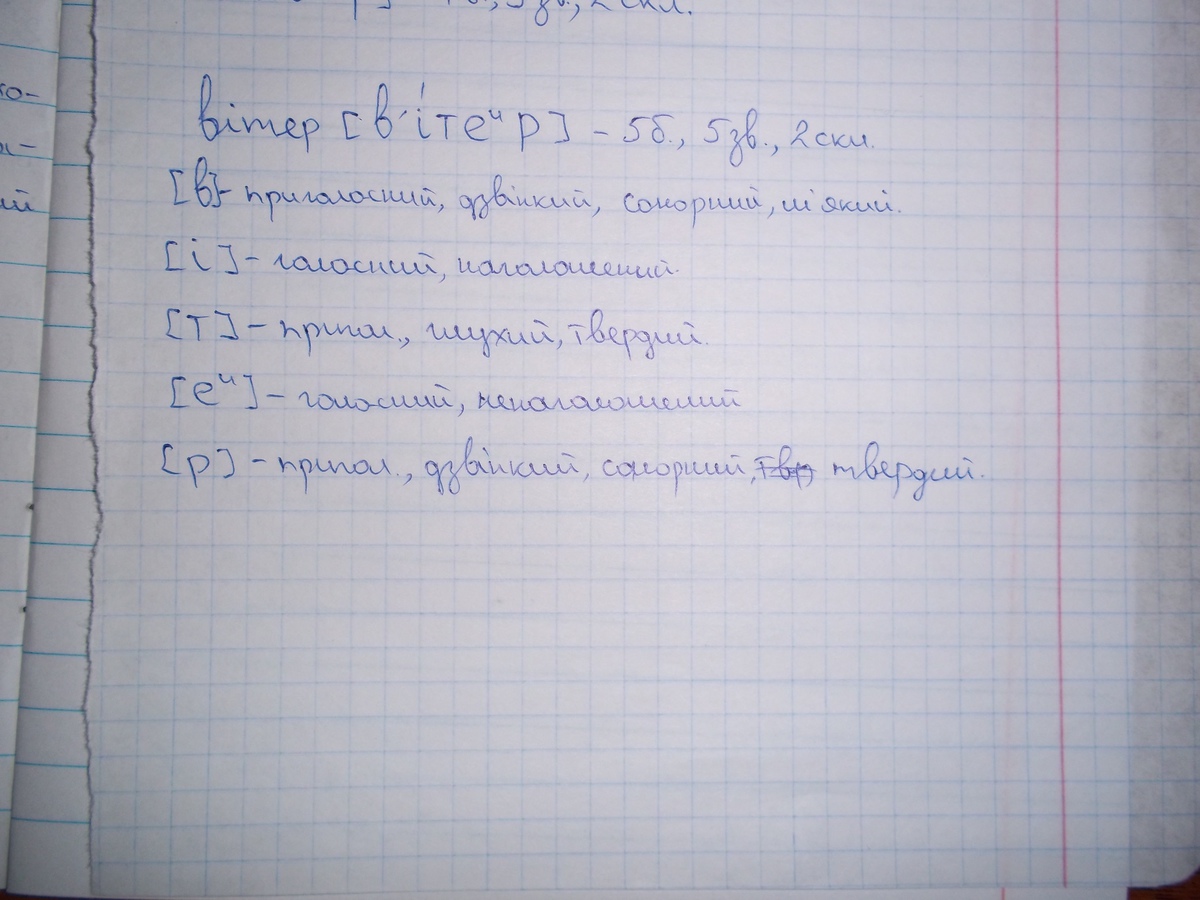 2 скл.
вітер [в'íтеир] – 5б., 5зв., 2скл.
[в]- приголосний, дзвінкий, сонорний, м'який.
[і] – голосний, наголошений.
[т] – пригол., глухий, твердий.
[еи] – голосний, ненаголошений
[р] – пригол., дзвінкий, сонорний, твердий.